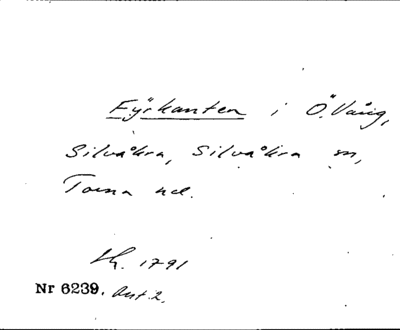 Fyrkanten i Ö. Vång,
Silvåkra, Silvåkra sn,
Torna hd.
Sk. 1791
Nr 6239. Ant 2.